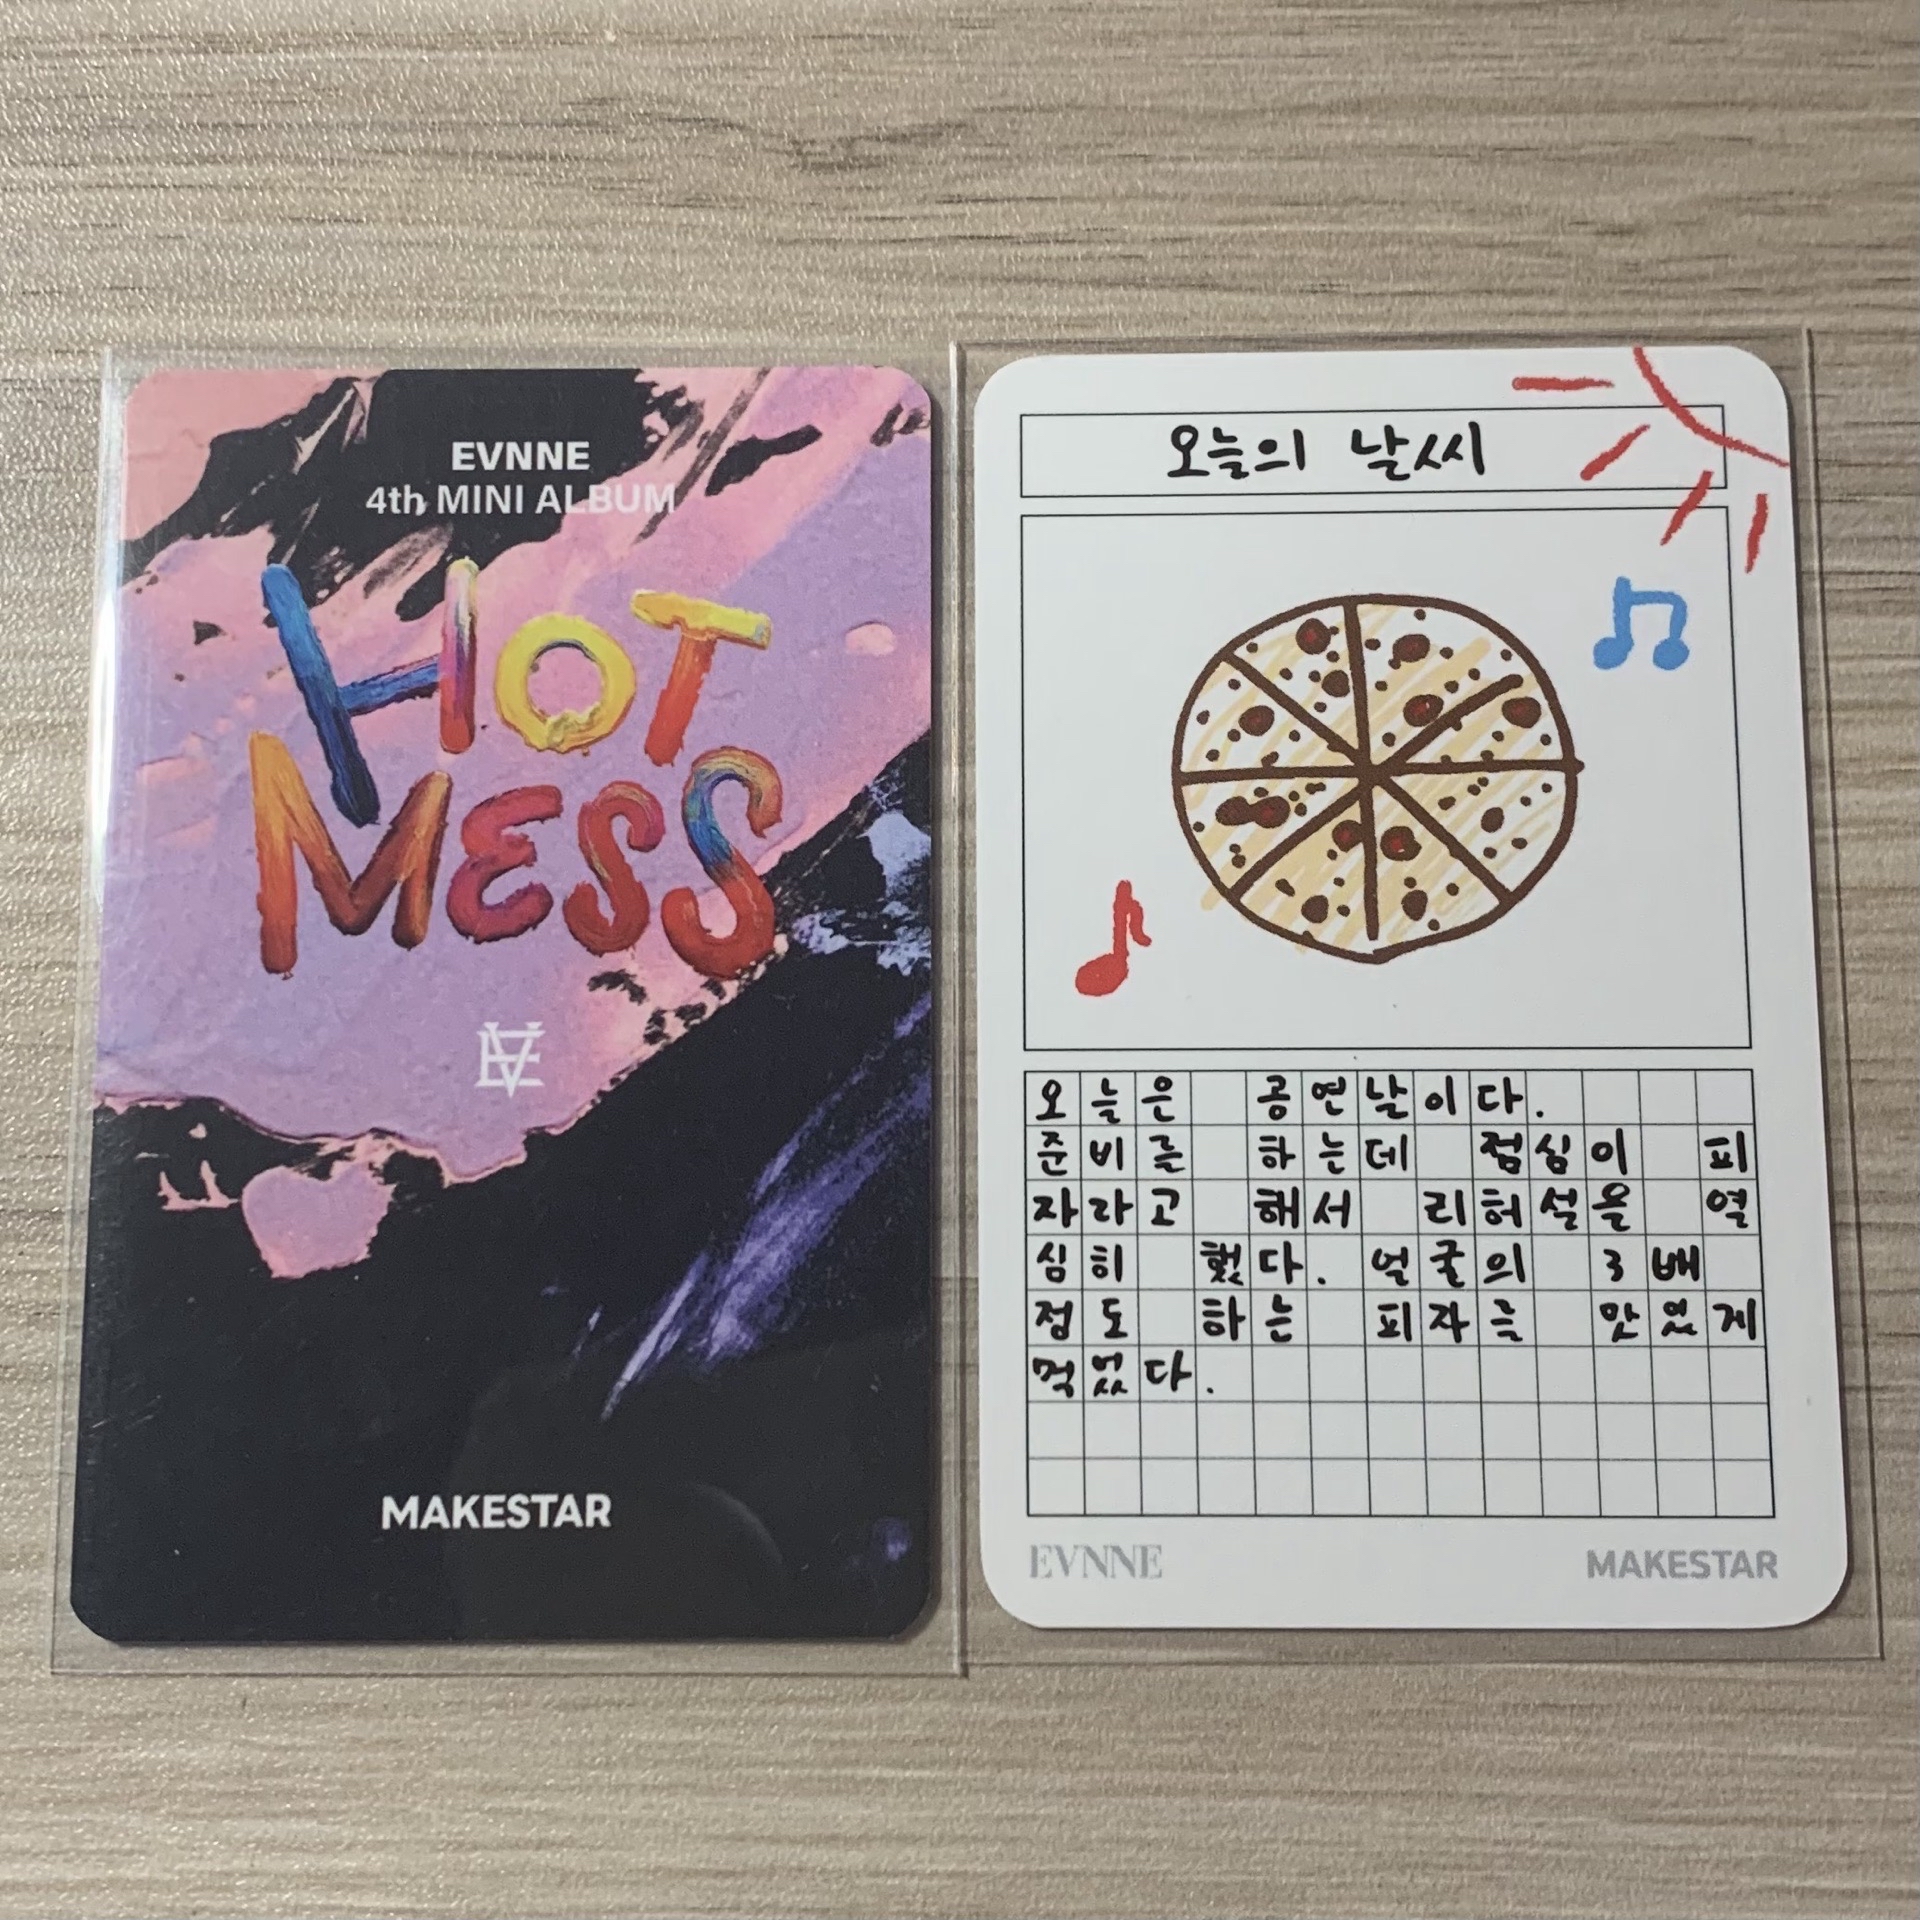 EVNNE
4th MINI ALBUM
HOT
MESS
EVE
MAKESTAR
오늘의 날씨
오늘은 공연날이다.
준비를 하는데 점심이 피
자라고 해서 리허설을 열
심히 했다. 얼굴의 3배
정도 하는 피자를 맛있게
먹었다.
EVNNE
MAKESTAR